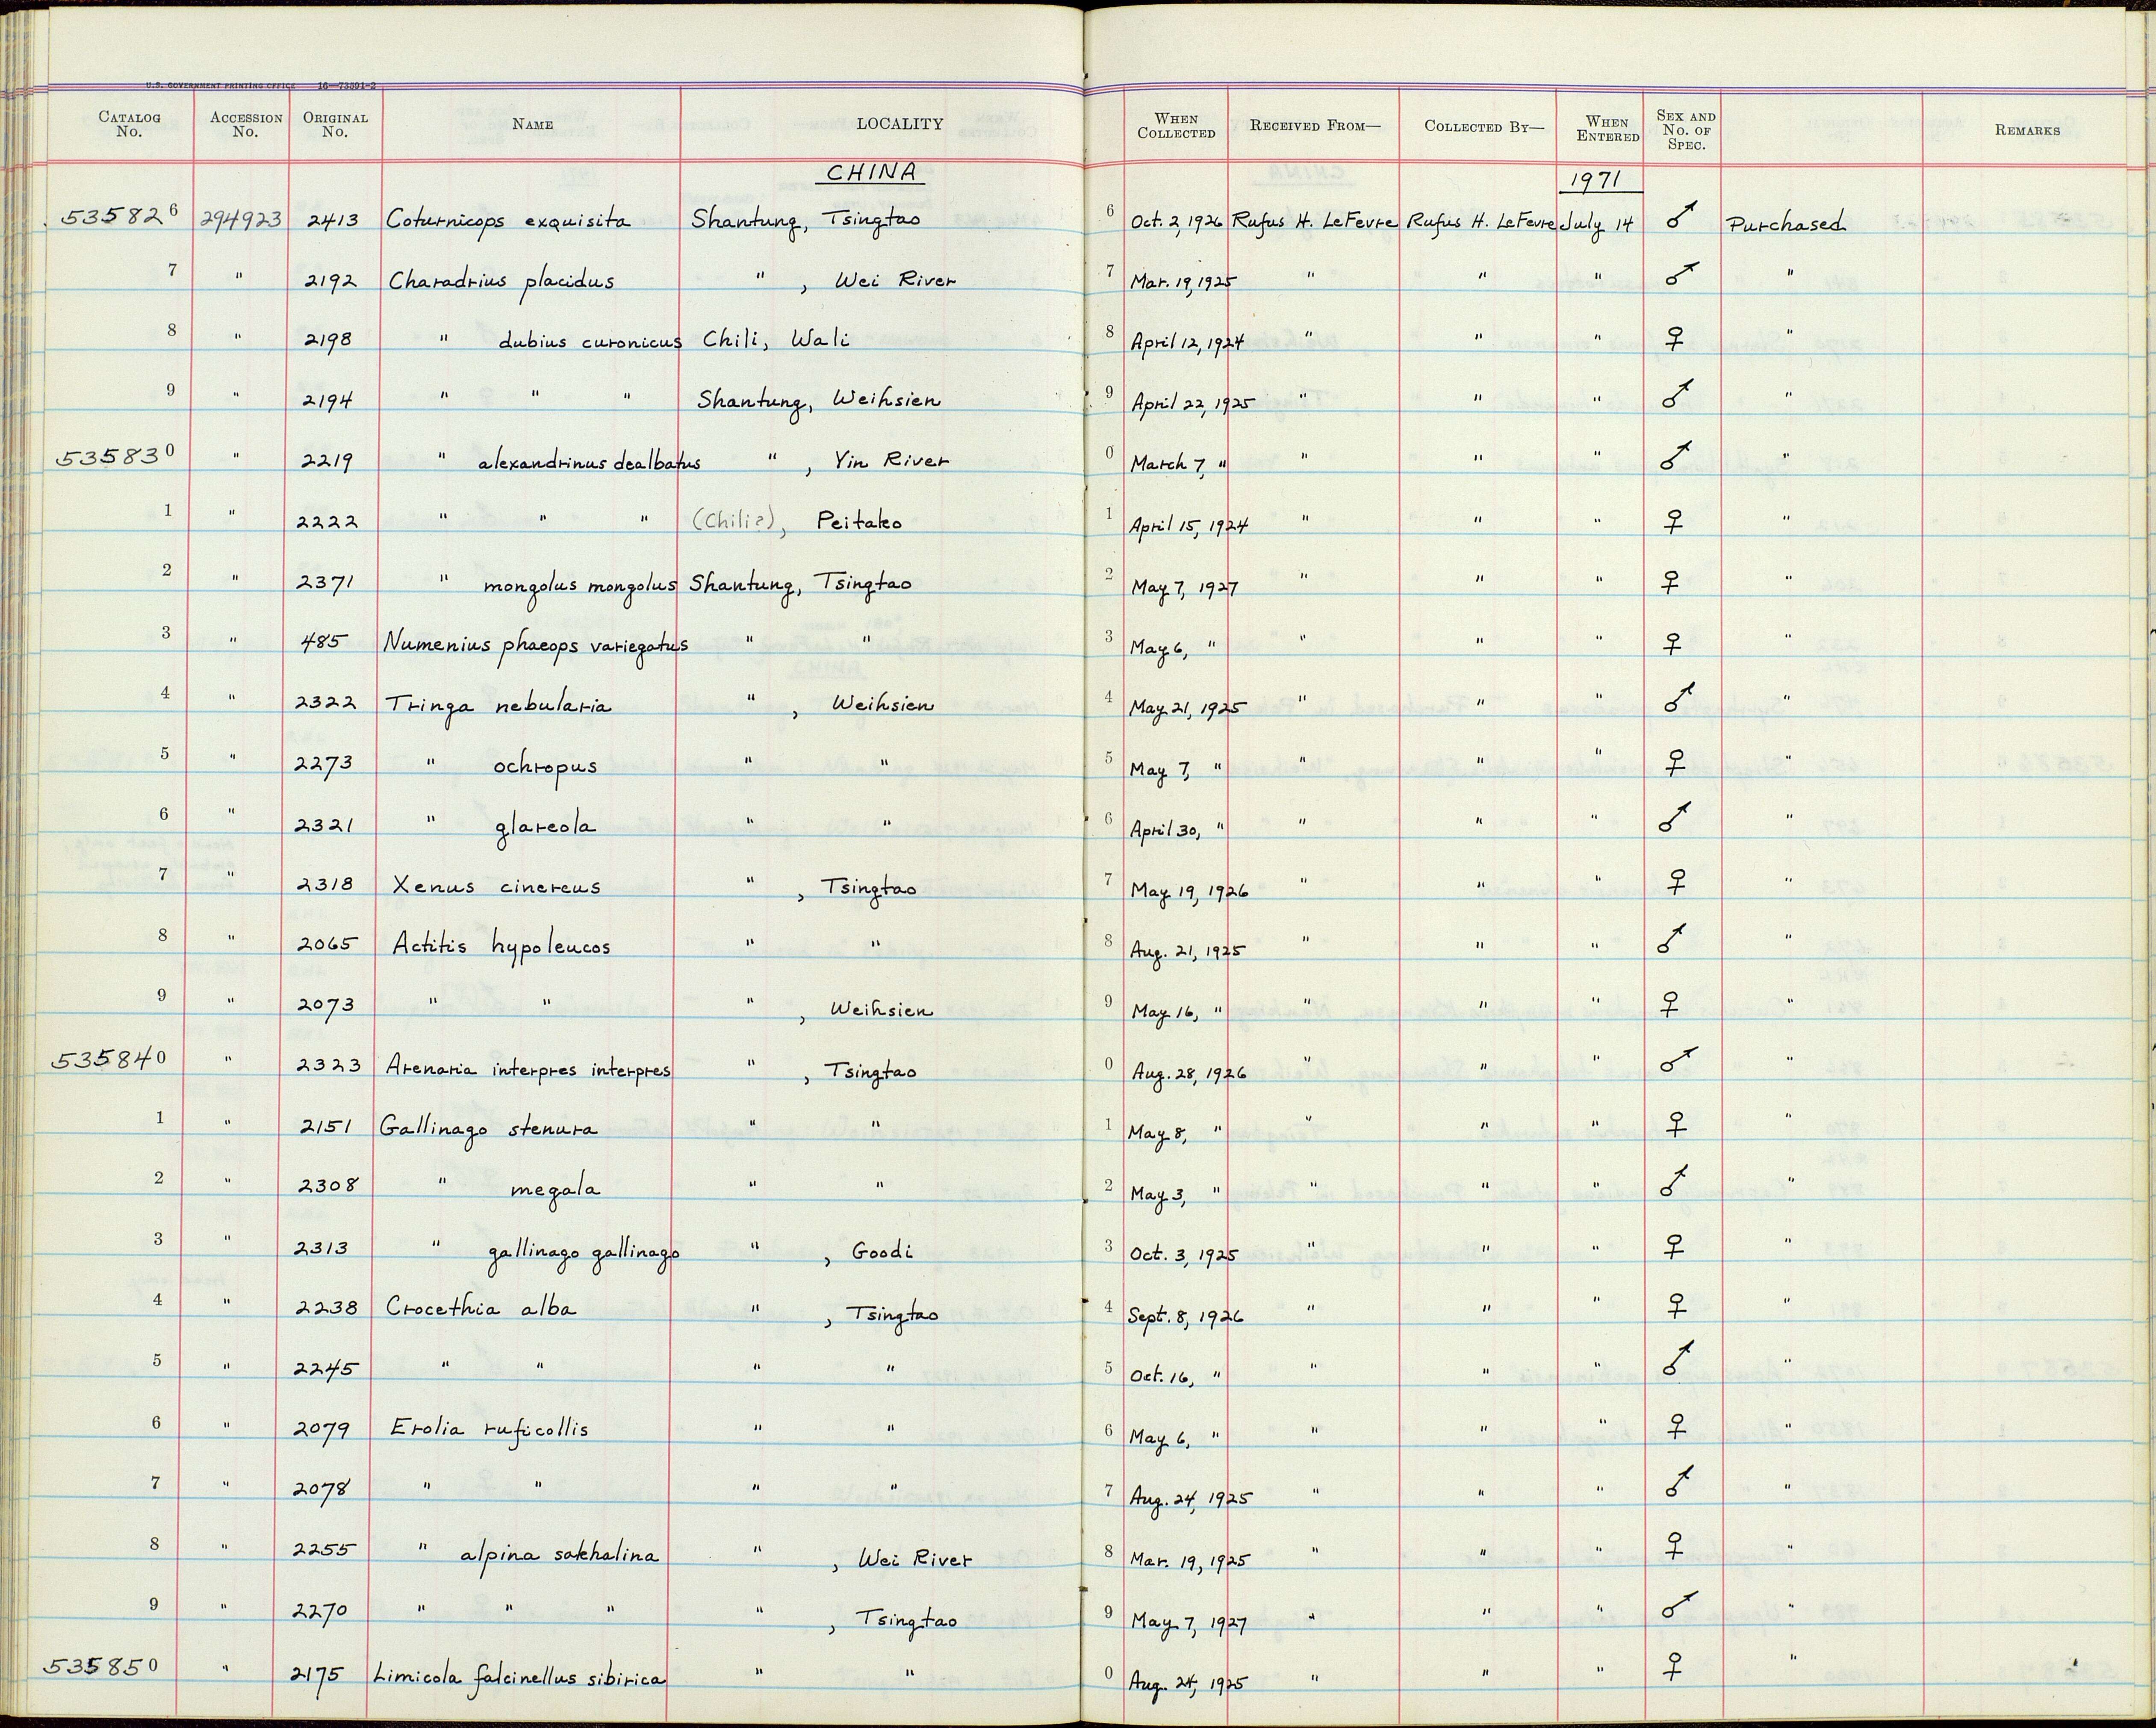 U.S. GOVERNMENT PRINTING OFFICE 16—73591-2
CATALOG No. ACCESSION No. ORIGINAL No. NAME LOCALITY WHEN COLLECTED RECEIVED FROM— COLLECTED BY— WHEN ENTERED SEX AND No. OF SPEC. REMARKS
CHINA 1971
535826 294923 2413 Coturnicops exquisita Shantung, Tsingtao 6 Oct. 2, 1926 Rufus H. LeFevre Rufus H. LeFevre July 14 ♂ Purchased
7 " 2192 Charadrius placidus " , Wei River 7 Mar. 19, 1925 " " " ♂ "
8 " 2198 " dubius curonicus Chili, Wali 8 April 12, 1924 " " " ♀ "
9 " 2194 " " " Shantung, Weihsien 9 April 22, 1925 " " " ♂ "
535830 " 2219 " alexandrinus dealbatus " , Yin River 0 March 7, " " " " ♂ "
1 " 2222 " " " (Chili?), Peitako 1 April 15, 1924 " " " ♀ "
2 " 2371 " mongolus mongolus Shantung, Tsingtao 2 May 7, 1927 " " " ♀ "
3 " 485 Numenius phaeops variegatus " " 3 May 6, " " " " ♀ "
4 " 2322 Tringa nebularia " , Weihsien 4 May 21, 1925 " " " ♂ "
5 " 2273 " ochropus " " 5 May 7, " " " " ♀ "
6 " 2321 " glareola " " 6 April 30, " " " " ♂ "
7 " 2318 Xenus cinereus " , Tsingtao 7 May 19, 1926 " " " ♀ "
8 " 2065 Actitis hypoleucos " " 8 Aug. 21, 1925 " " " ♂ "
9 " 2073 " " " , Weihsien 9 May 16, " " " " ♀ "
535840 " 2323 Arenaria interpres interpres " , Tsingtao 0 Aug. 28, 1926 " " " ♂ "
1 " 2151 Gallinago stenura " " 1 May 8, " " " " ♀ "
2 " 2308 " megala " " 2 May 3, " " " " ♂ "
3 " 2313 " gallinago gallinago " , Goodi 3 Oct. 3, 1925 " " " ♀ "
4 " 2238 Crocethia alba " , Tsingtao 4 Sept. 8, 1926 " " " ♀ "
5 " 2245 " " " " 5 Oct. 16, " " " " ♂ "
6 " 2079 Erolia ruficollis " " 6 May 6, " " " " ♀ "
7 " 2078 " " " " 7 Aug. 24, 1925 " " " ♂ "
8 " 2255 " alpina sakhalina " , Wei River 8 Mar. 19, 1925 " " " ♀ "
9 " 2270 " " " " , Tsingtao 9 May 7, 1927 " " " ♂ "
535850 " 2175 Limicola falcinellus sibirica " " 0 Aug. 24, 1925 " " " ♀ "